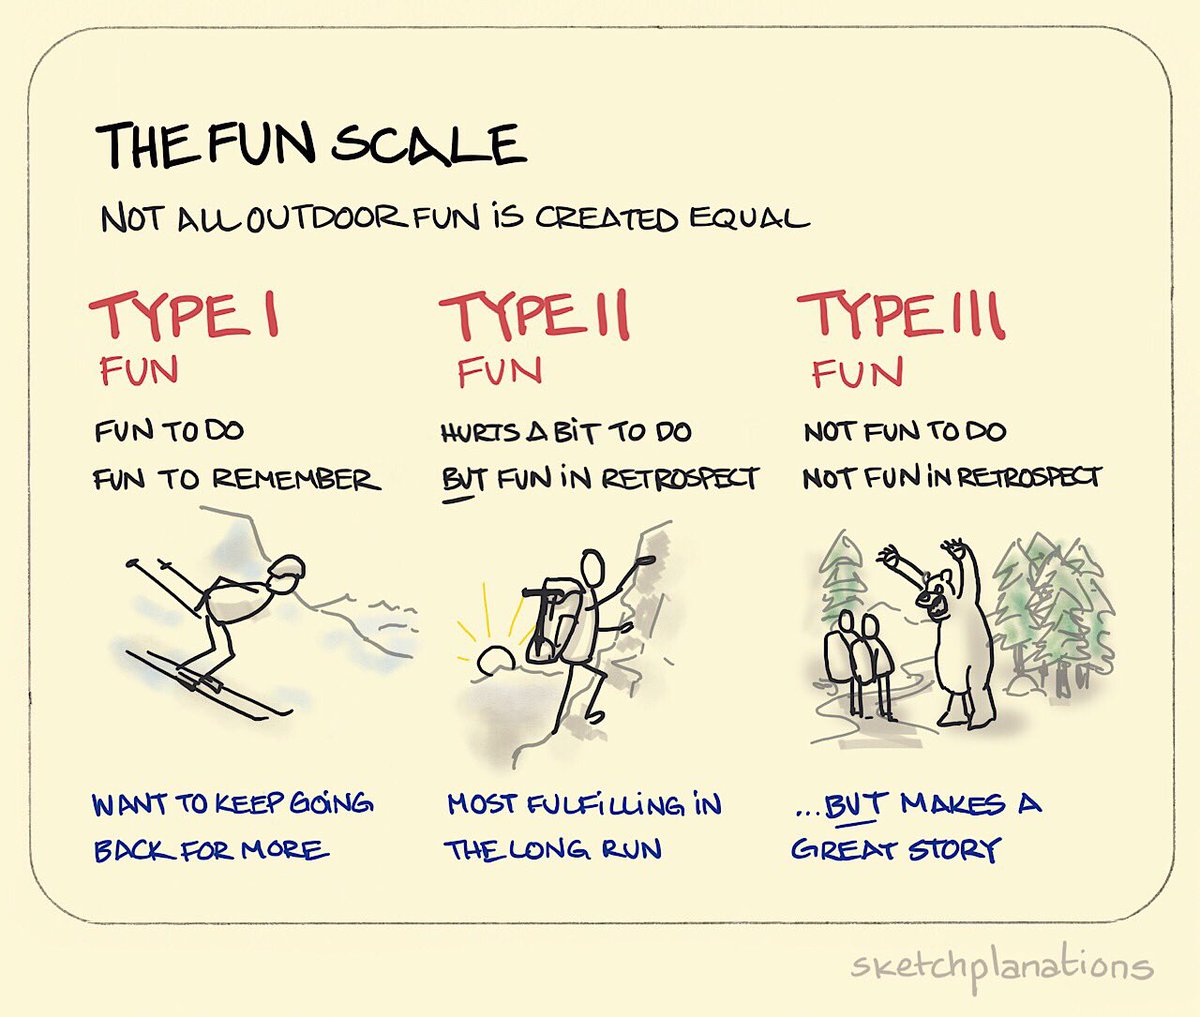 THE FUN SCALE
NOT ALL OUTDOOR FUN iS CREATED EQUAL
TYPE I
FUN
FUN TO DO
FUN TO REMEMBER
WANT TO KEEP GOiNG
BACK FOR MORE
TYPE II
FUN
HURTS A BiT TO DO
BUT FUN iN RETROSPECT
MOST FULFiLLiNG iN
THE LONG RUN
TYPE III
FUN
NOT FUN TO DO
NOT FUN iN RETROSPECT
...BUT MAKES A
GREAT STORY
sketchplanations